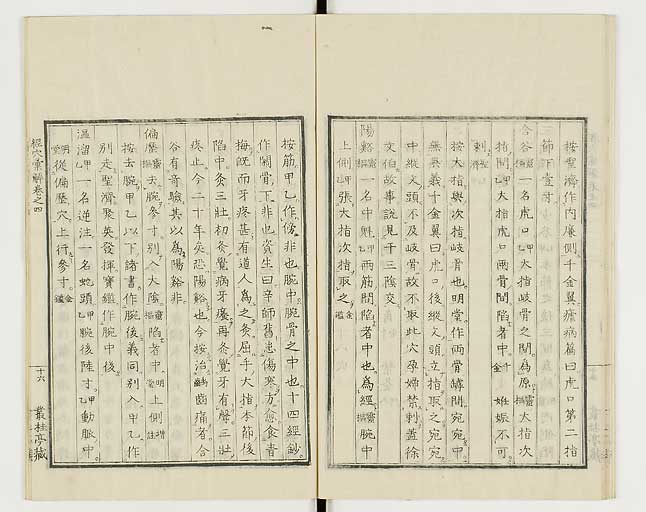 按聖濟作内廉側千金翼瘧病篇曰虎口第二指
節下一寸
合谷 一名虎口 甲乙 大指岐骨之間爲原 靈樞 大指次
指間 甲乙 大指虎口兩骨間陷者中 千金 姙娠不可
刺 聖濟
按大指與次指岐骨也明堂作兩骨罅間宛宛中
無异義千金翼曰虎口後縱文頭立指取之宛宛
中縱文頭不及岐骨故不取此穴孕婦禁刺蓋徐
文伯故事說見于三陰交
陽谿 靈樞 一名中魁 甲乙 兩筋間陷者中也爲經 靈樞 腕中
上側 甲乙 張大指次指取之 金鑑
按筋甲乙作傍非也腕中腕骨之中也十四經鈔
作關骨下非也資生曰辛師舊患傷寒方愈食青
梅既而牙疼甚有道人爲之灸屈手大指本節後
陷中灸三壯初灸覺病牙癢再灸覺牙有聲三壯
疼止今二十年矣恐陽谿也今按治齒痛者合
谷有奇驗其以爲陽谿非
偏歷 靈樞 去腕參寸別入大陰 靈樞 陷者中 明堂 上側
按去腕甲乙以下諸書作腕後義同別入甲乙作
別走聖濟聚英發揮寶鑑作腕中後
溫溜 甲乙 一名逆注一名蛇頭 甲乙 腕後陸寸 甲乙 動脈中
明堂 從偏歷穴上行參寸 金鑑
經穴彙解卷之四
十六
叢桂亭藏